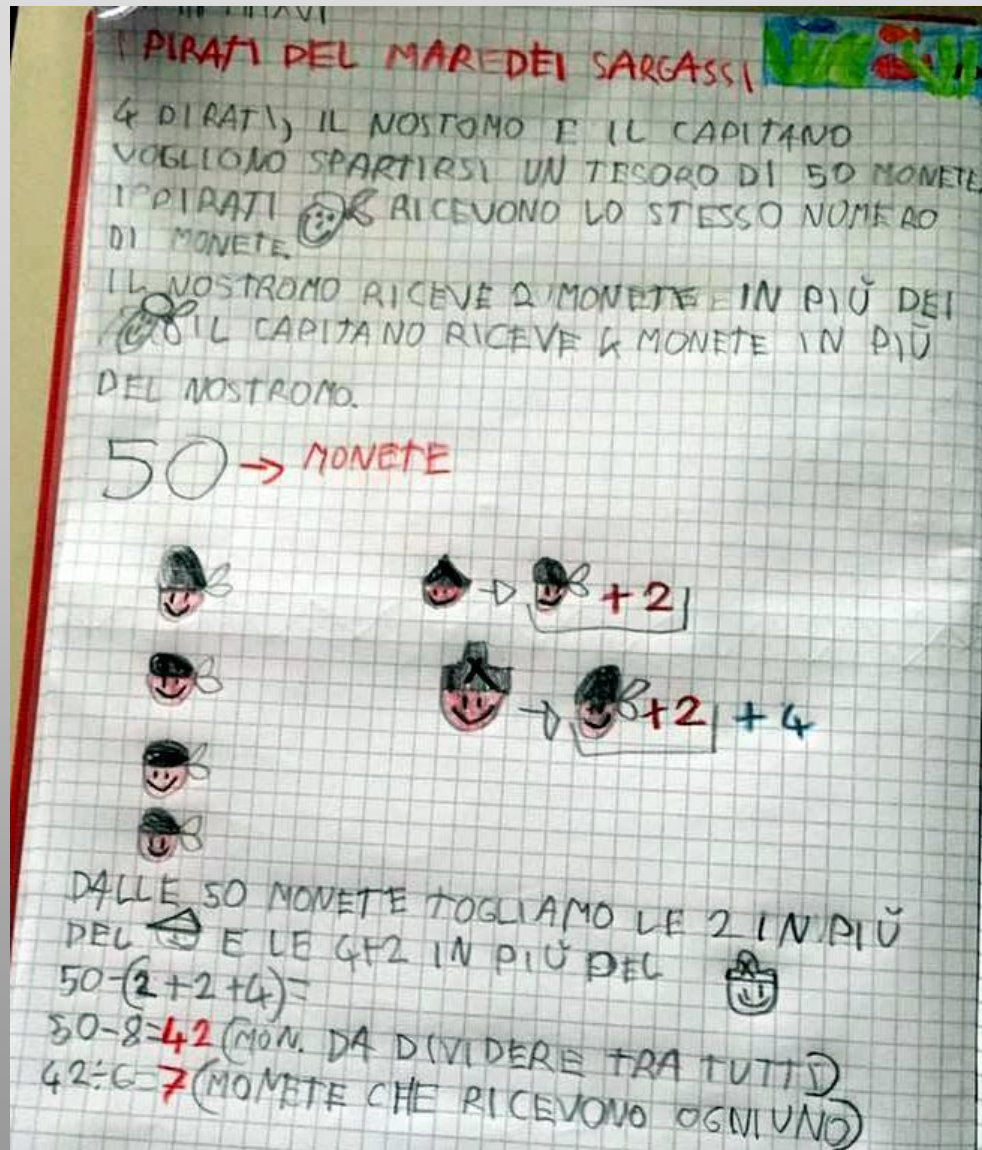 I PIRATI DEL MARE DEI SARGASSI
4 PIRATI, IL NOSTOMO E IL CAPITANO
VOGLIONO SPARTIRSI UN TESORO DI 50 MONETE
I PIRATI RICEVONO LO STESSO NUMERO
DI MONETE.
IL NOSTROMO RICEVE 2 MONETE IN PIŬ DEI
IL CAPITANO RICEVE 4 MONETE IN PIŬ
DEL NOSTROMO.
50 → MONETE
→ +2
→ +2 + 4
DALLE 50 MONETE TOGLIAMO LE 2 IN PIŬ
DEL E LE 4+2 IN PIŬ DEL
50-(2+2+4)=
50-8=42 (MON. DA DIVIDERE TRA TUTTI)
42÷6=7 (MONETE CHE RICEVONO OGNIUNO)